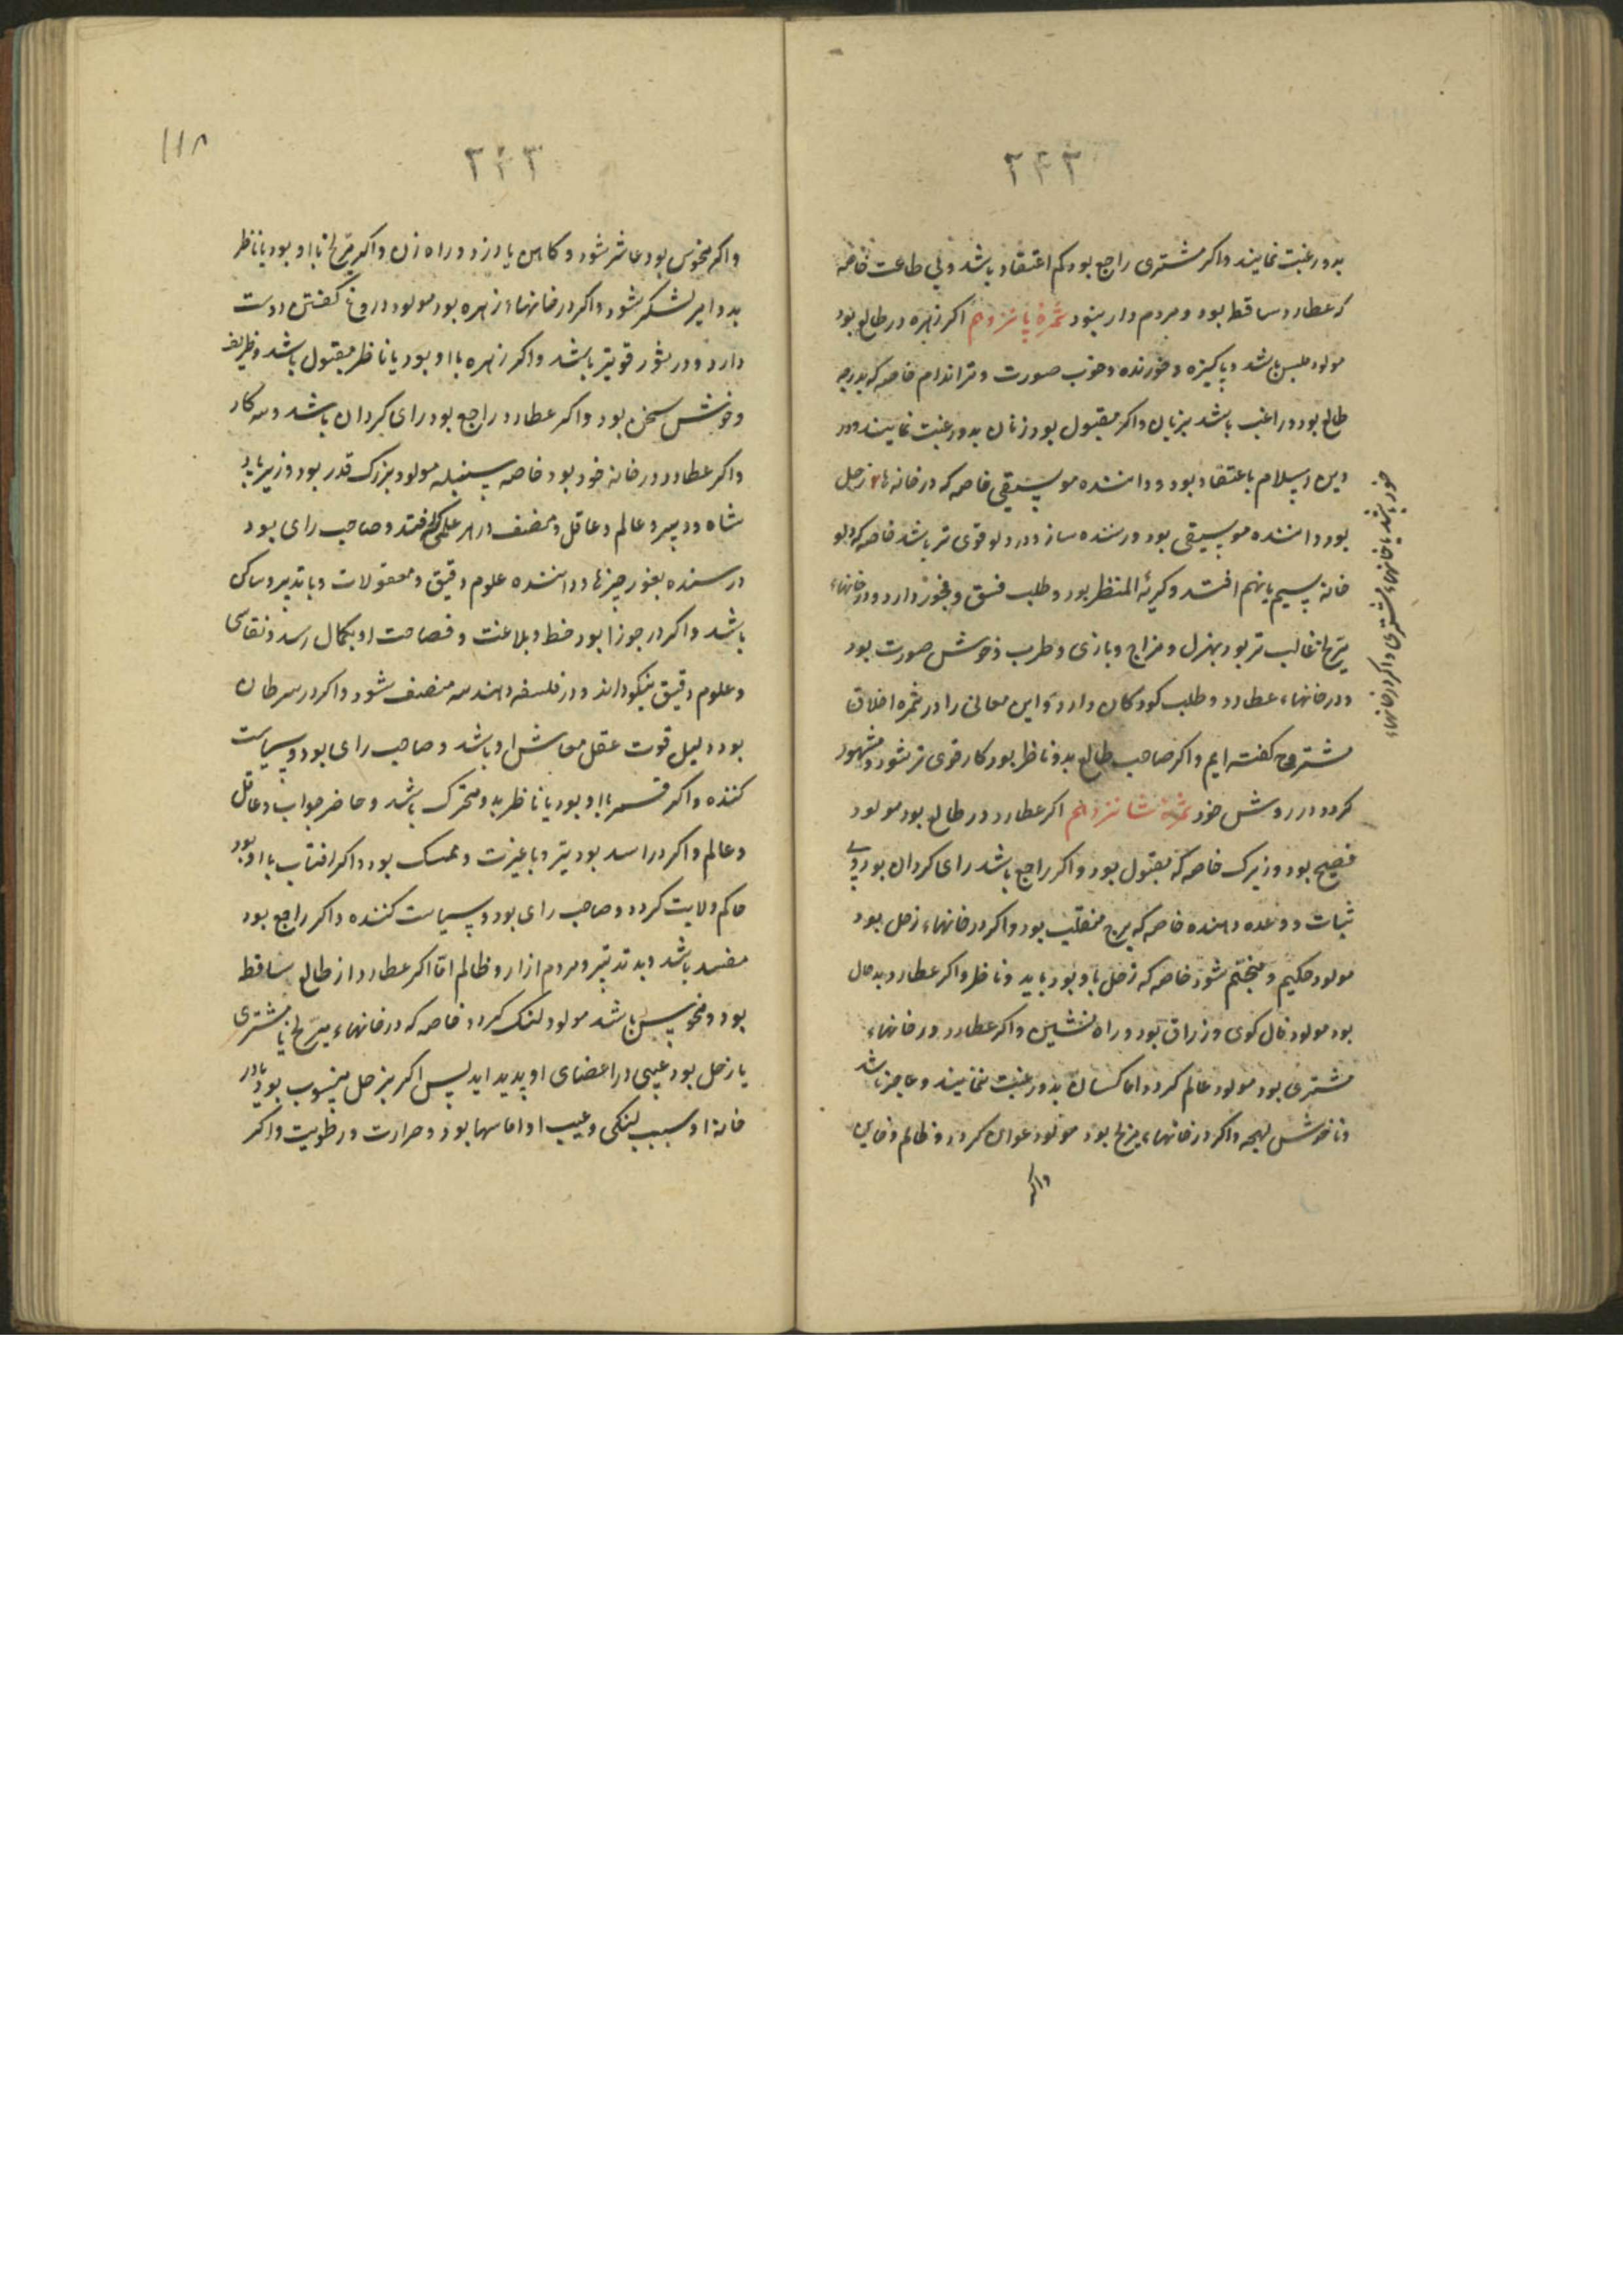 ۲۴۳
بدو رغبت نمایند واکر مشتری راجع بود کم اعتقاد باشد و بی طاعت خاصه
که عطارد ساقط بود و مردم دار بنود ثمرهٔ پانزدهم اکر زهره در طالع بود
مولود ملبس باشد و پاکیزه و خورنده و خوب صورت و تر اندام خاصه که بدرجه
طالع بود و راغب باشد بزنان واکر مقبول بود زنان بدو رغبت نمایند و در
دین اسلام باعتقاد بود و دانندهٔ موسیقی خاصه که در خانهاء زحل
بود دانندهٔ موسیقی بود و زننده ساز و در دلو قوی تر باشد خاصه که دلو
خانه سیم یا نهم افتد و کریه المنظر بود و طلب فسق و فجور دارد و در خانهاء
مریخ غالب تر بود بهزل و مزاح و بازی و طرب و خوش صورت بود
و در خانهاء عطارد و طلب کودکان دارد و این معانی را در ثمره اخلاق
مشتروح کفته ایم واکر صاحب طالع بدو ناظر بود کار قوی تر شود و مشهور
کردد در روش خود ثمرهٔ شانزدهم اکر عطارد در طالع بود مولود
فصیح بود و زیرک خاصه که مقبول بود و اکر راجع باشد رای کردان بود و بی
ثبات و وعده دهنده خاصه که برج منقلب بود و اکر در خانهاء زحل بود
مولود حکیم و منجم شود خاصه که زحل باو بود یا بد و ناظر واکر عطارد بدحال
بود مولود فال کوی و زراق بود و راه نشین واکر عطارد در خانهاء
مشتری بود مولود عالم کردد اما کسان بدو رغبت ننمایند و عاجز باشد
و ناخوش لهجه واکر در خانهاء مریخ بود مولود عوان کردد و ظالم و خاین
واکر
خورشید یا خانهاء مشتری واکر در خانهاء
۱۱۸
۲۴۳
واکر منحوس بود عاشر شود و کاهن یا دزد و راه زن واکر مریخ با او بود یا ناظر
بدو امیر لشکر شود واکر در خانهاء زهره بود مولود دروغ کفتن دوست
دارد و در ثور قویتر باشد واکر زهره با او بود یا ناظر مقبول باشد و ظریف
و خوش سخن بود واکر عطارد راجع بود رای کردان باشد و سه کار
واکر عطارد در خانه خود بود خاصه سنبله مولود بزرک قدر بود وزیر یا بد
شاه و دبیر و عالم و عاقل و مصنف در هر علمی که افتد و صاحب رای بود
در رسنده بغور چیزها و دانندهٔ علوم دقیق و معقولات و با تدبیر و ساکن
باشد واکر در جوزا بود خط و بلاغت و فصاحت او بکمال رسد و نقاشی
و علوم دقیق نیکو داند و در فلسفه و هندسه مصنف شود واکر در سرطان
بود دلیل قوت عقل معاش او باشد و صاحب رای بود و سیاست
کننده واکر قمر با او بود یا ناظر بدو متحرک باشد و حاضر جواب و عاقل
و عالم واکر در اسد بود تیز و با غیرت و ممسک بود واکر افتاب با او بود
حاکم ولایت کردد و صاحب رای بود و سیاست کننده واکر راجع بود
مفسد باشد و بد تدبیر و مردم ازار و ظالم اما اکر عطارد از طالع ساقط
بود و منحوس باشد مولود لنک کردد خاصه که در خانهاء مریخ یا مشتری
یا زحل بود عیبی در اعضای او پدید اید پس اکر بزحل منسوب بود یا در
خانهٔ او سبب لنکی و عیب او اماسها بود و حرارت و رطوبت واکر